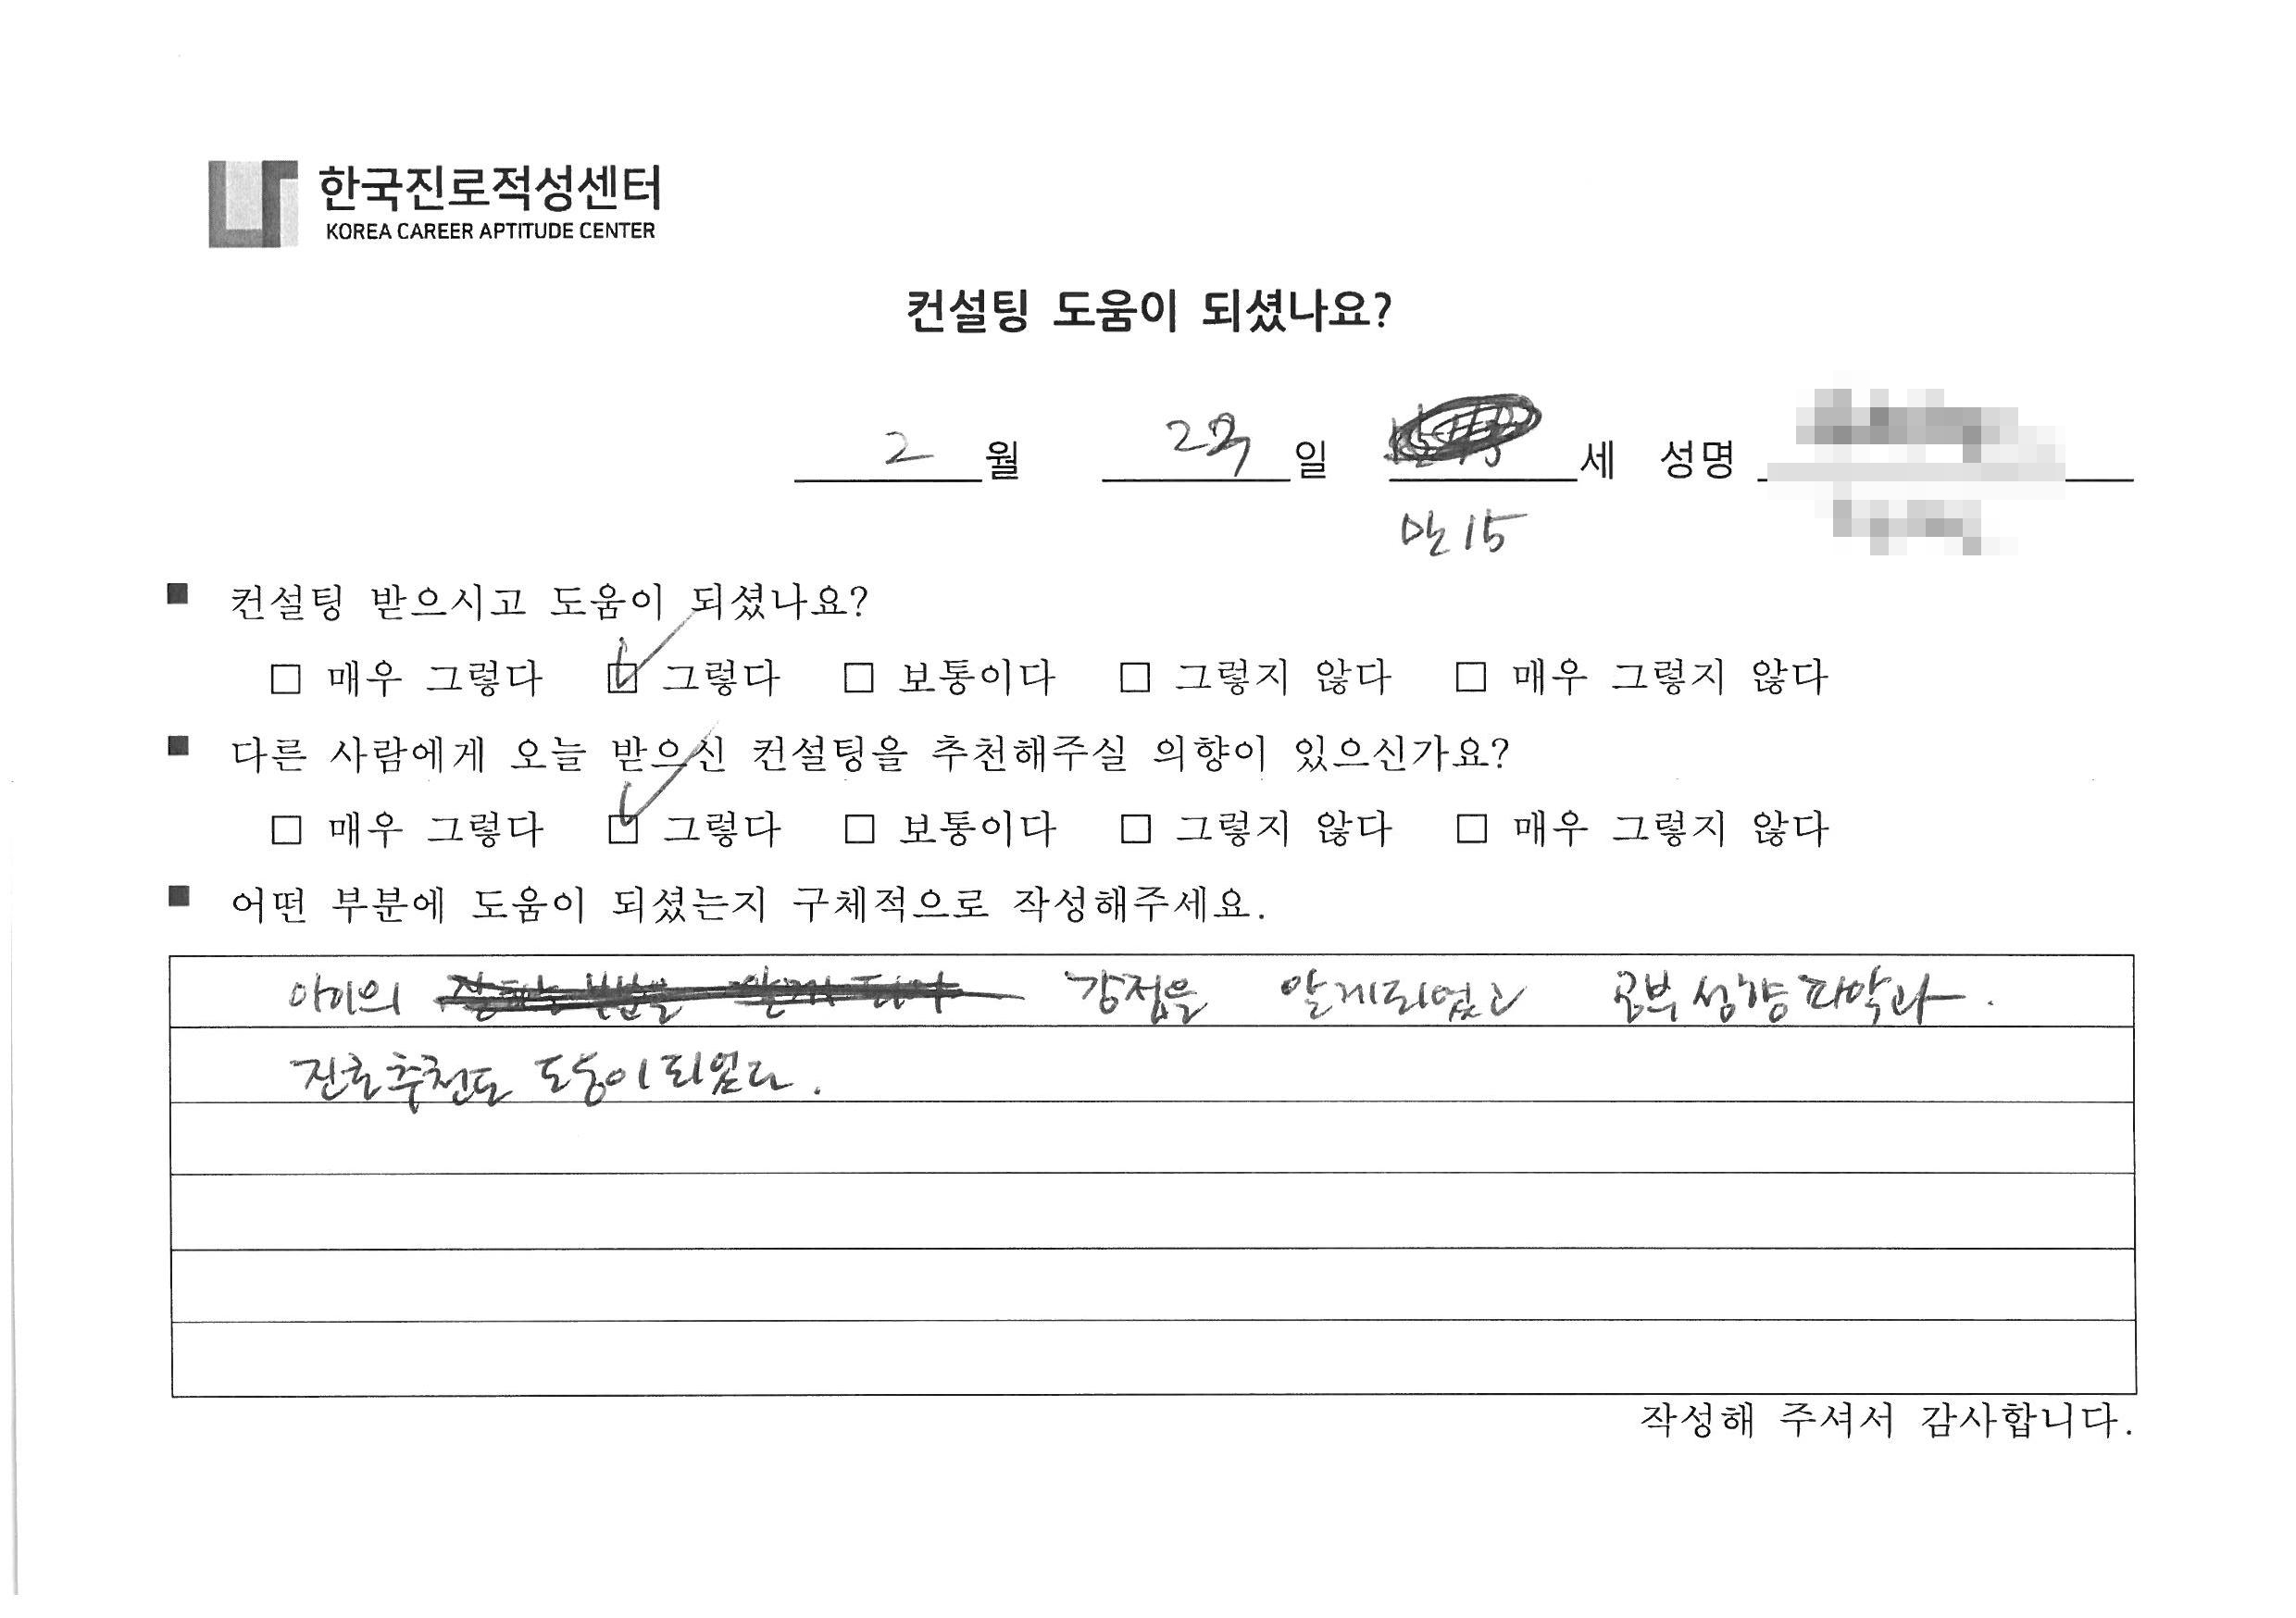 한국진로적성센터
KOREA CAREER APTITUDE CENTER
컨설팅 도움이 되셨나요?
2 월 일 세 성명
만 15
■ 컨설팅 받으시고 도움이 되셨나요?
□ 매우 그렇다 ☑ 그렇다 □ 보통이다 □ 그렇지 않다 □ 매우 그렇지 않다
■ 다른 사람에게 오늘 받으신 컨설팅을 추천해주실 의향이 있으신가요?
□ 매우 그렇다 ☑ 그렇다 □ 보통이다 □ 그렇지 않다 □ 매우 그렇지 않다
■ 어떤 부분에 도움이 되셨는지 구체적으로 작성해주세요.
아이의 강점을 알게되었고 공부성향파악과.
진로추천도 도움이되었다.
작성해 주셔서 감사합니다.